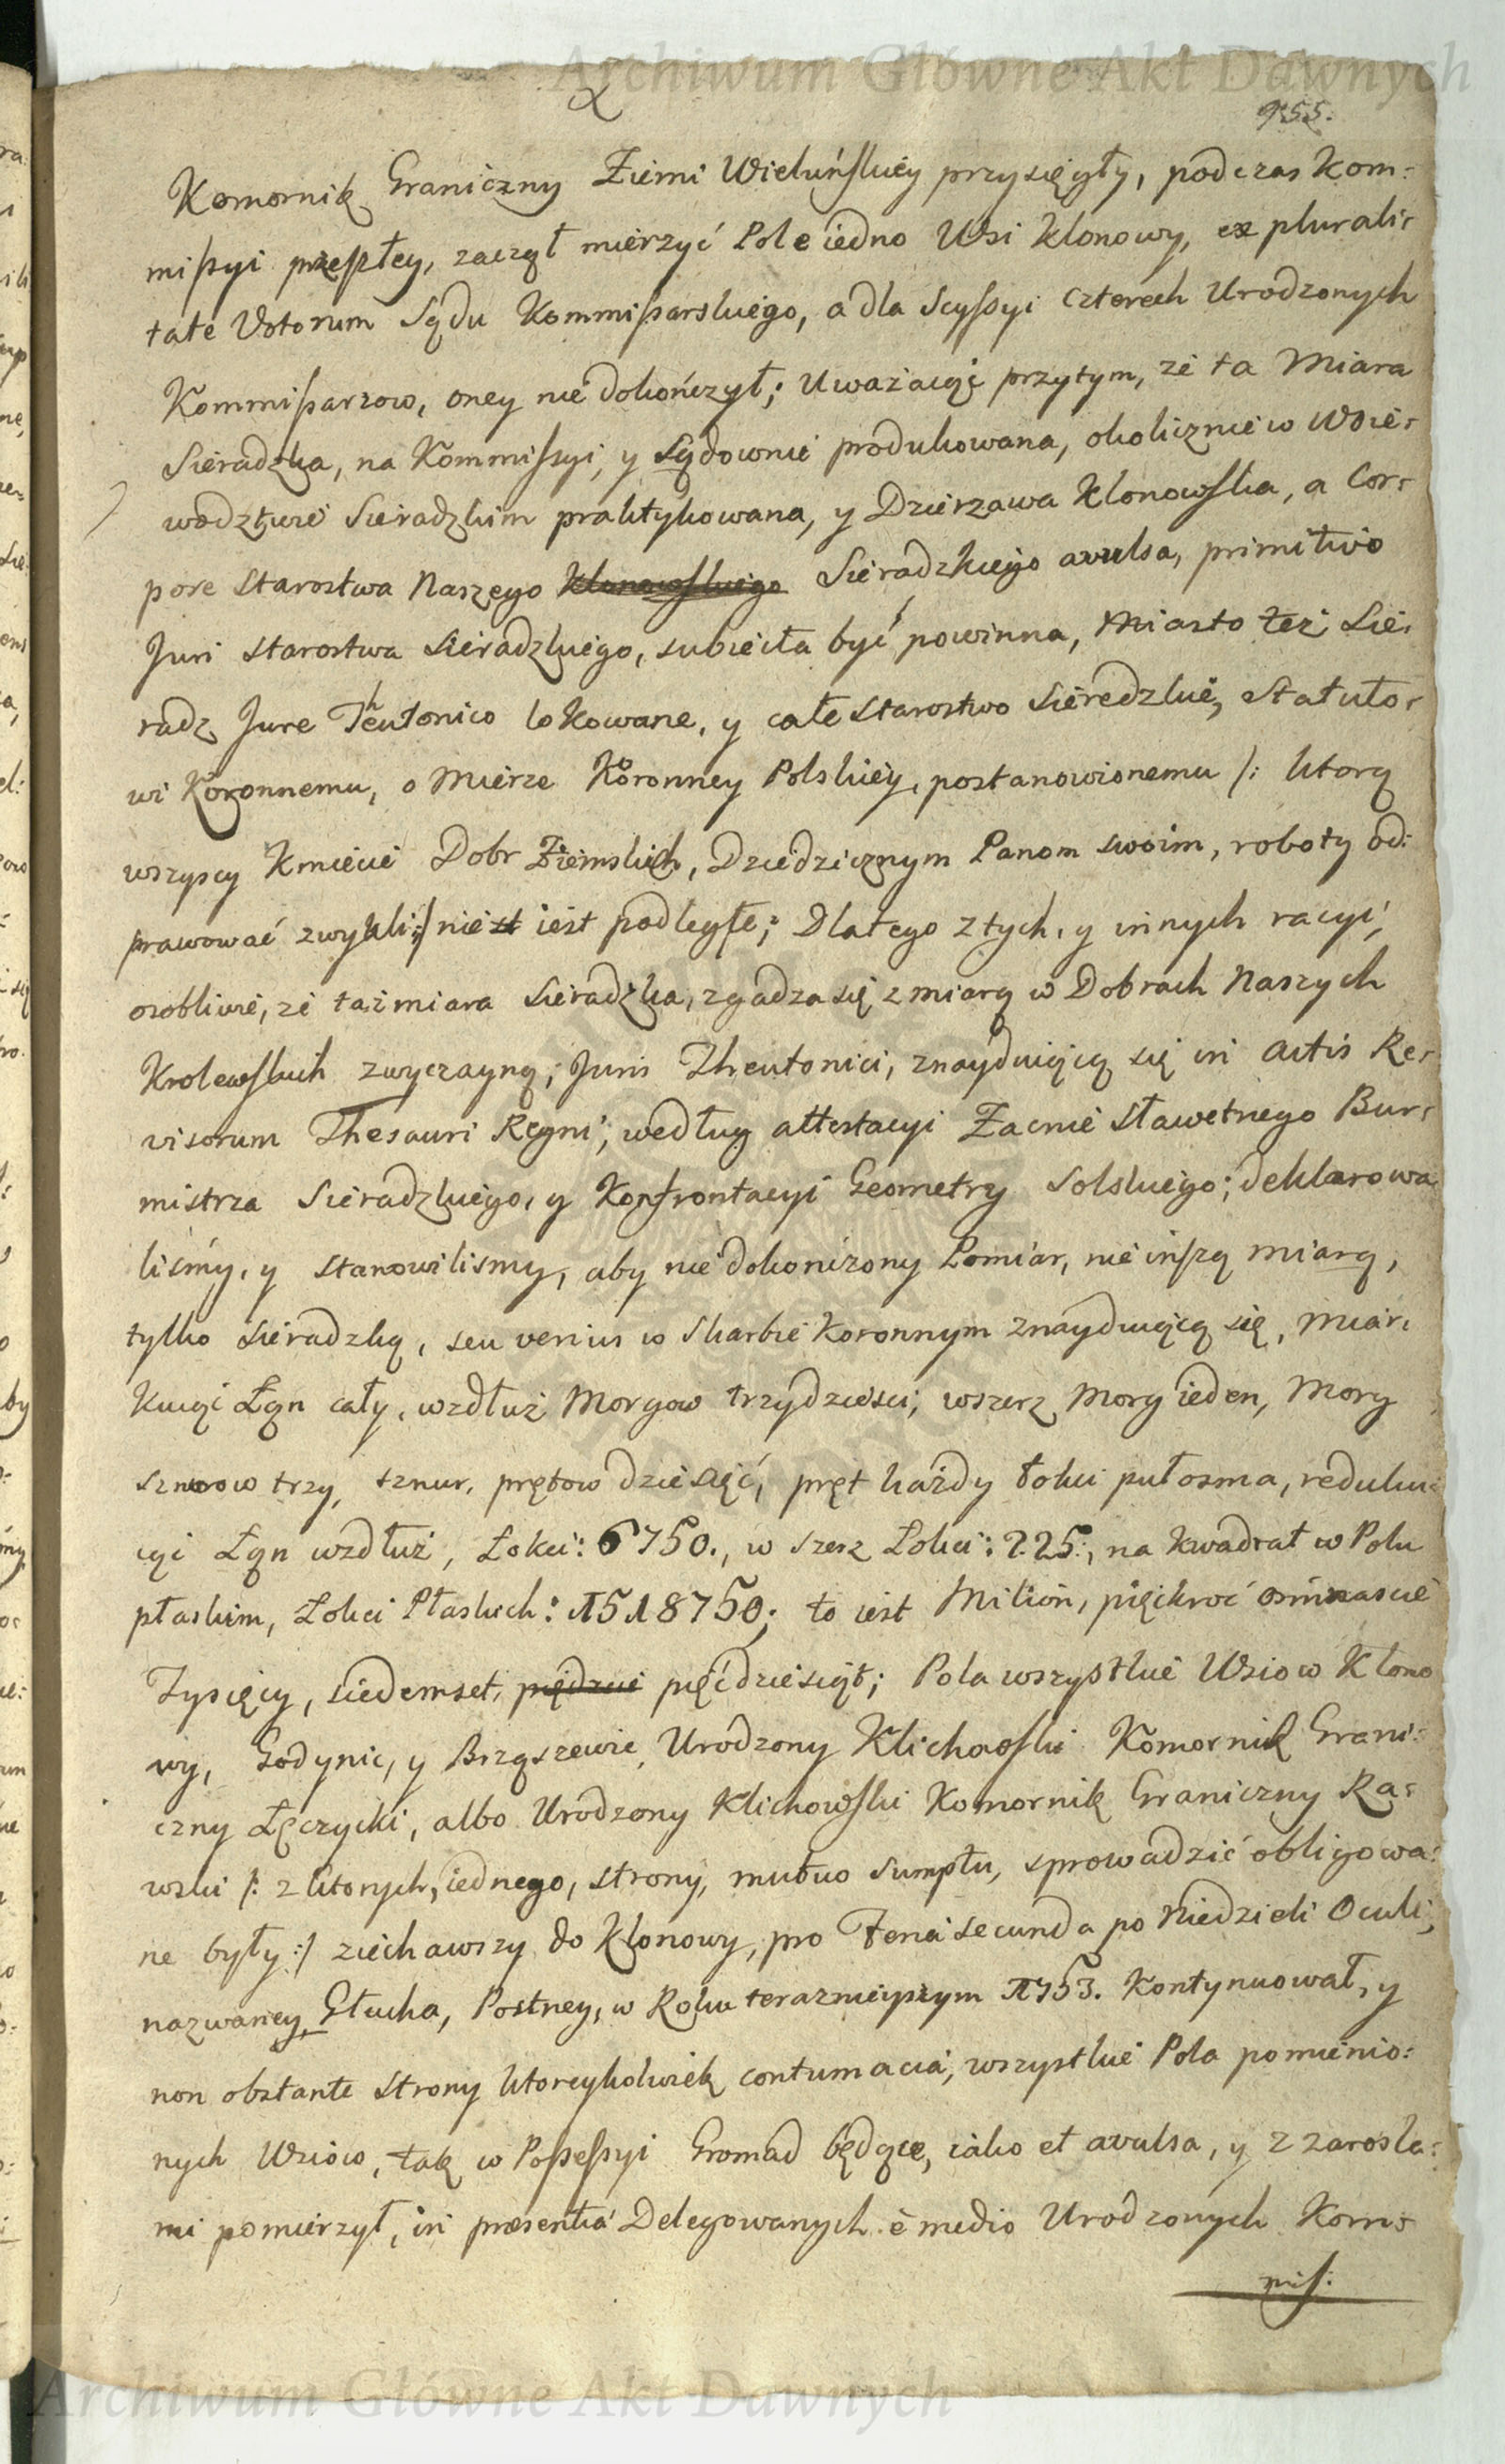 Archiwum Główne Akt Dawnych
955.
Komornik Graniczny Ziemi Wieluńskiey przysięgły, podczas Kom:
missyi przeszłey, zaczął mierzyć Pole iedno Wsi Klonowy, ex plurali:
tate Votorum Sądu Kommissarskiego, a dla Scyssyi czterech Urodzonych
Kommissarzow, oney nie dokończył; Uważaiąc przytym, ze ta Miara
Sieradzka, na Kommissyi, y Sądownie produkowana, okolicznie w Woie:
wodztwie Sieradzkim praktykowana, y Dzierzawa Klonowska, a Cor:
pore Starostwa Naszego Klonowskiego Sieradzkiego avulsa, primitivo
Juri Starostwa Sieradzkiego, subiecta być powinna, Miasto też Sie:
radz Jure Theutonico lokowane, y całe Starostwo Sieredzkie, Statuto:
wi Koronnemu, o Mierze Koronney Polskiey, postanowionemu /: ktorą
wszyscy Kmiecie Dobr Ziemskich, Dziedzicznym Panom swoim, roboty od:
prawować zwykli :/ nie iest podległe; Dlatego z tych, y innych racyi,
osobliwie, ze taż miara Sieradzka, zgadza się z miarą w Dobrach Naszych
Krolewskich zwyczayną, Juris Theutonici, znayduiącą się in Actis Re:
visorum Thesauri Regni, według attestacyi Zacnie Sławetnego Bur:
mistrza Sieradzkiego, y Konfrontacyi Geometry Solskiego; deklarowa
lismy, y stanowilismy, aby nie dokończony Pomiar, nie inszą miarą,
tylko Sieradzką, seu verius w Skarbie Koronnym znayduiącą się, Miar:
kuiąc Łan cały, wzdłuż Morgow trzydziesci, wszerz Morg ieden, Morg
sznurow trzy, sznur, prętow dziesięć, pręt każdy łokci pułosma, reduku:
iąc Łan wzdłuż, Łokci: 6750., w szerz Łokci: 225., na kwadrat w Polu
płaskim, Łokci Płaskich: 1518750; to iest Milion, pięckroć ośmnascie
Tysięcy, siedemset, piędzie pięćdziesiąt; Pola wszystkie Wsiow Klono
wy, Godynic, y Brząszewic, Urodzony Klichowski Komornik Grani:
czny Łęczycki, albo Urodzony Klichowski Komornik Graniczny Ra:
wski /: z ktorych, iednego, strony, mutuo sumptu, sprowadzić obligowa:
ne były :/ ziechawszy do Klonowy, pro Feria secunda po Niedzieli Oculi,
nazwaney Głucha, Postney, w Roku teraznieyszym 1753. Kontynuował, y
non obstante strony ktoreykolwiek contumacia, wszystkie Pola pomienio:
nych Wsiow, tak w Possessyi Gromad będące, iako et avulsa, y z zarosla:
mi pomierzył, in præsentia Delegowanych è medio Urodzonych Kom:
mis:
Archiwum Główne Akt Dawnych